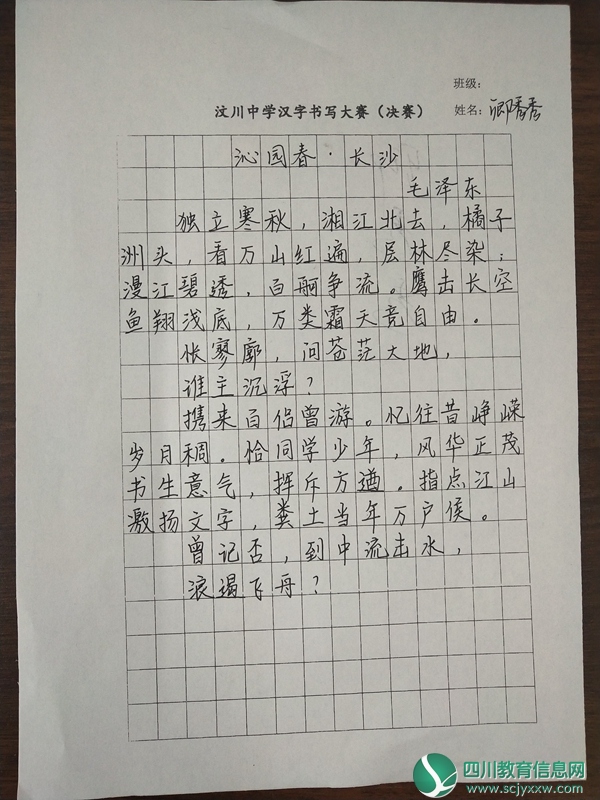 班级：
汶川中学汉字书写大赛（决赛）
姓名：卿香秀
沁园春·长沙
毛泽东
独立寒秋，湘江北去，橘子
洲头，看万山红遍，层林尽染；
漫江碧透，百舸争流。鹰击长空
鱼翔浅底，万类霜天竞自由。
怅寥廓，问苍茫大地，
谁主沉浮？
携来百侣曾游。忆往昔峥嵘
岁月稠。恰同学少年，风华正茂
书生意气，挥斥方遒。指点江山
激扬文字，粪土当年万户侯。
曾记否，到中流击水，
浪遏飞舟？
四川教育信息网
www.scjyxxw.com